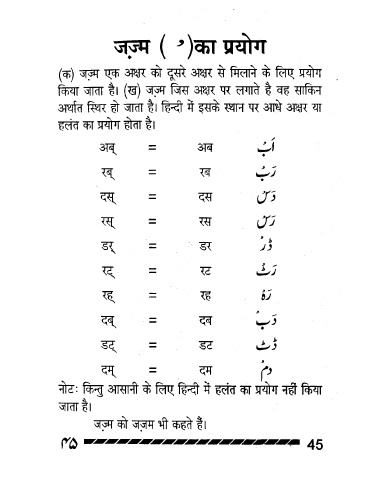 जज़्म ( ْ )का प्रयोग
(क) जज़्म एक अक्षर को दूसरे अक्षर से मिलाने के लिए प्रयोग
किया जाता है। (ख) जज़्म जिस अक्षर पर लगाते है वह साकिन
अर्थात स्थिर हो जाता है। हिन्दी में इसके स्थान पर आधे अक्षर या
हलंत का प्रयोग होता है।
अब् = अब اَبْ
रब् = रब رَبْ
दस् = दस دَسْ
रस् = रस رَسْ
डर् = डर ڈرْ
रट् = रट رَٹْ
रह् = रह رَہْ
दब् = दब دَبْ
डट् = डट ڈٹْ
दम् = दम دمْ
नोटः किन्तु आसानी के लिए हिन्दी में हलंत का प्रयोग नहीं किया
जाता है।
जज़्म को जज़म भी कहते हैं।
۴۵ 45